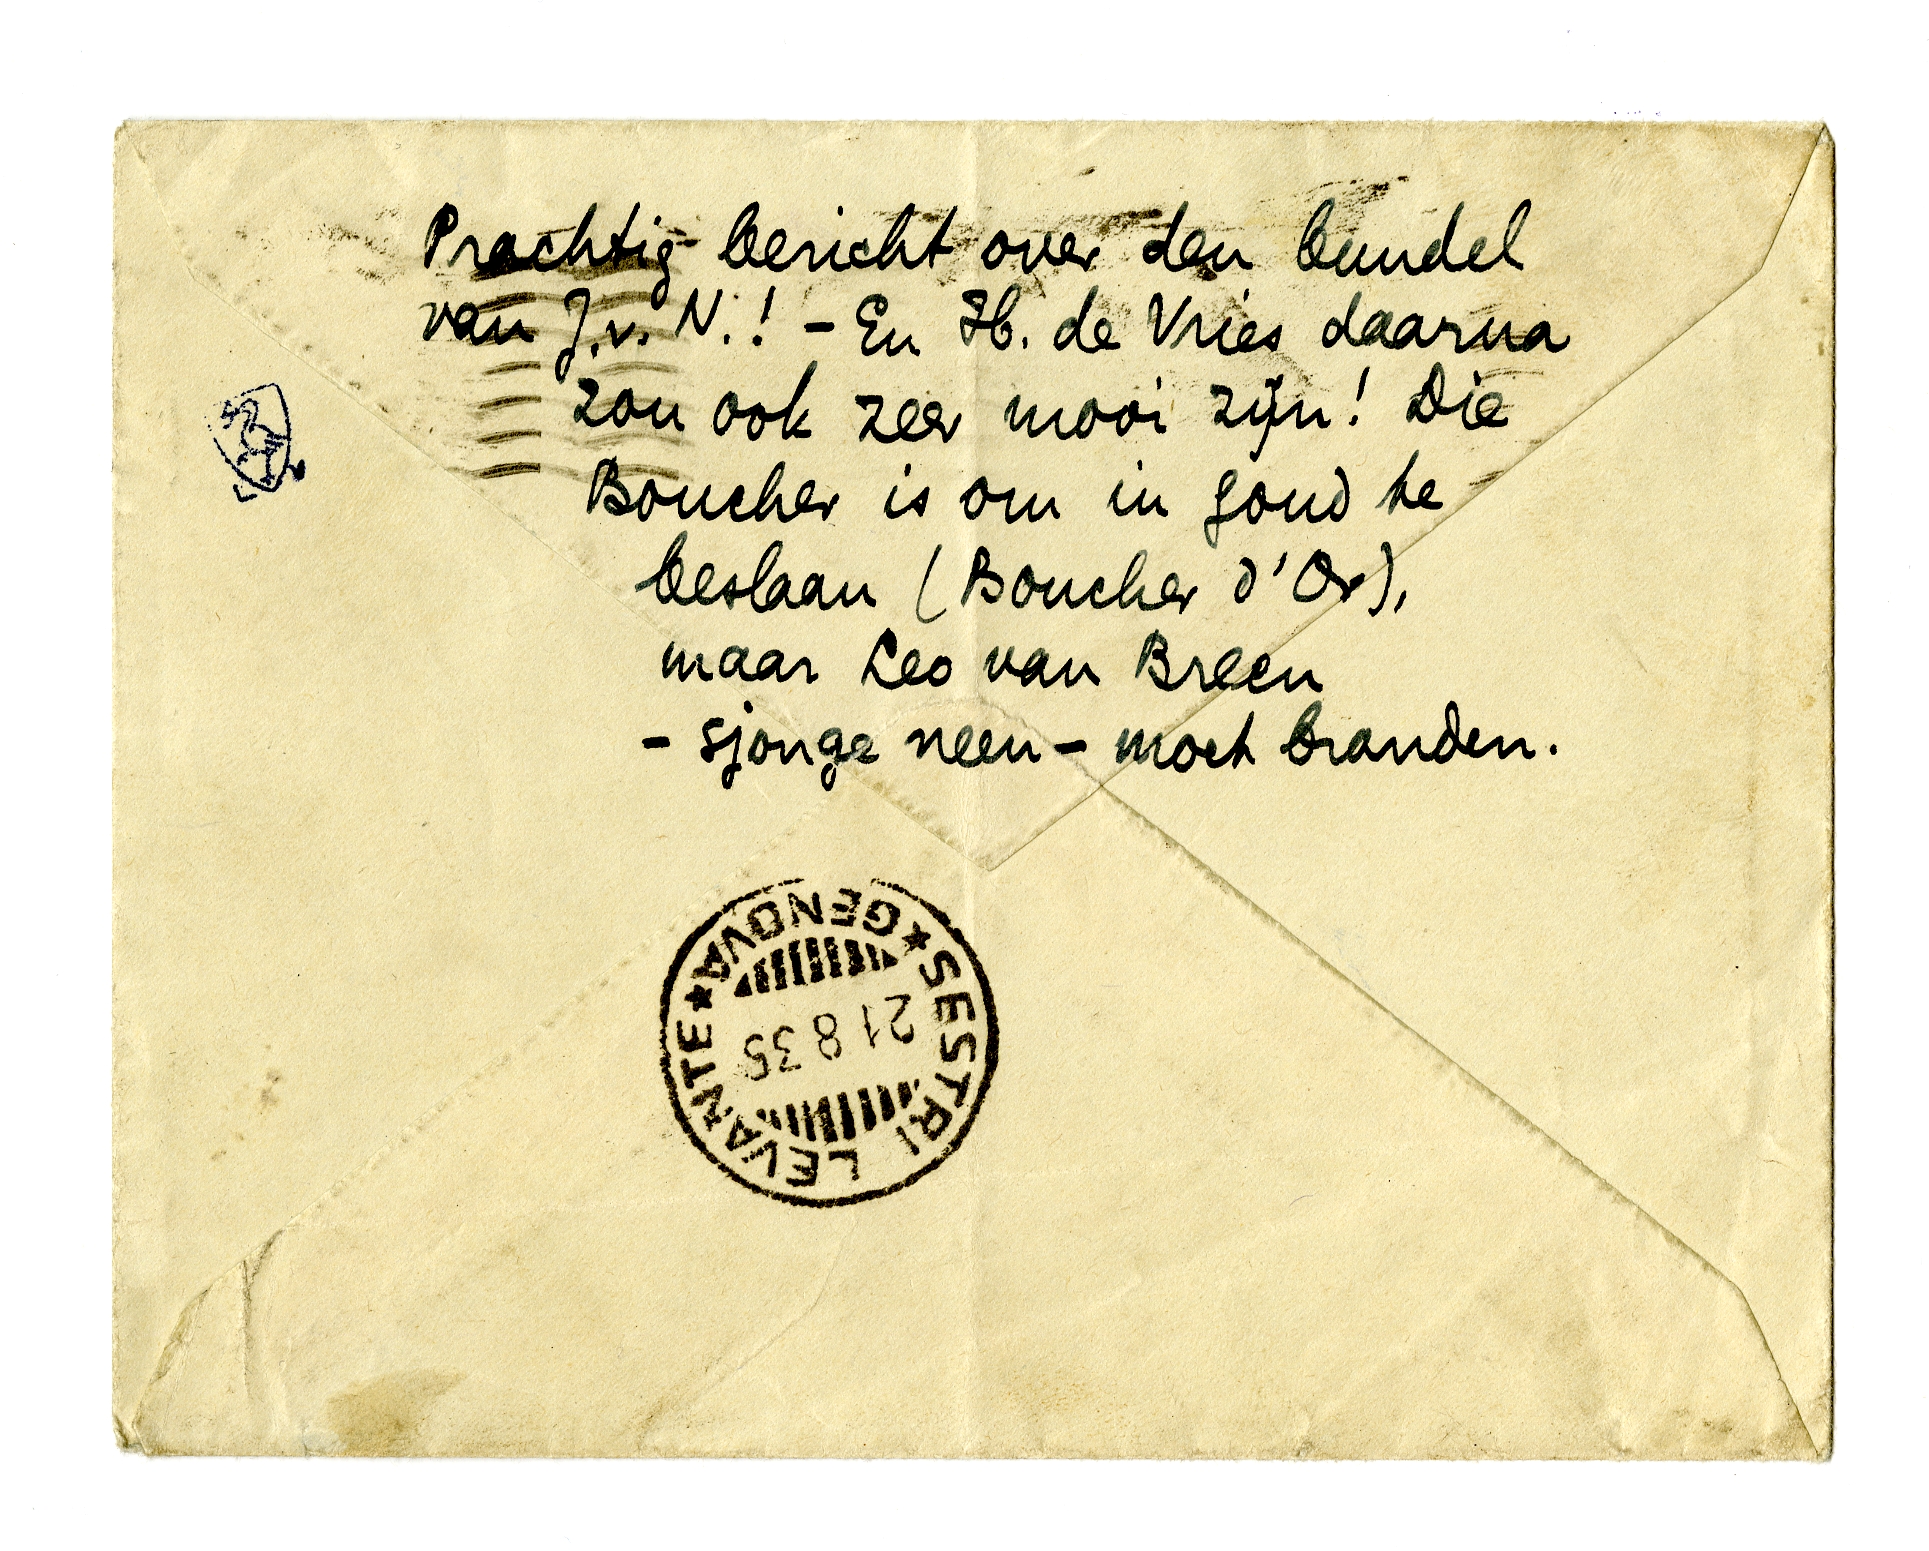 Prachtig bericht over den bundel
van J.v.N.! – En H. de Vries daarna
zou ook zeer mooi zijn! Die
Boucher is om in goud te
beslaan (Boucher d'Or),
maar Leo van Breen
– sjonge neen – moet branden.
SESTRI LEVANTE ★ GENOVA ★
21 8 35